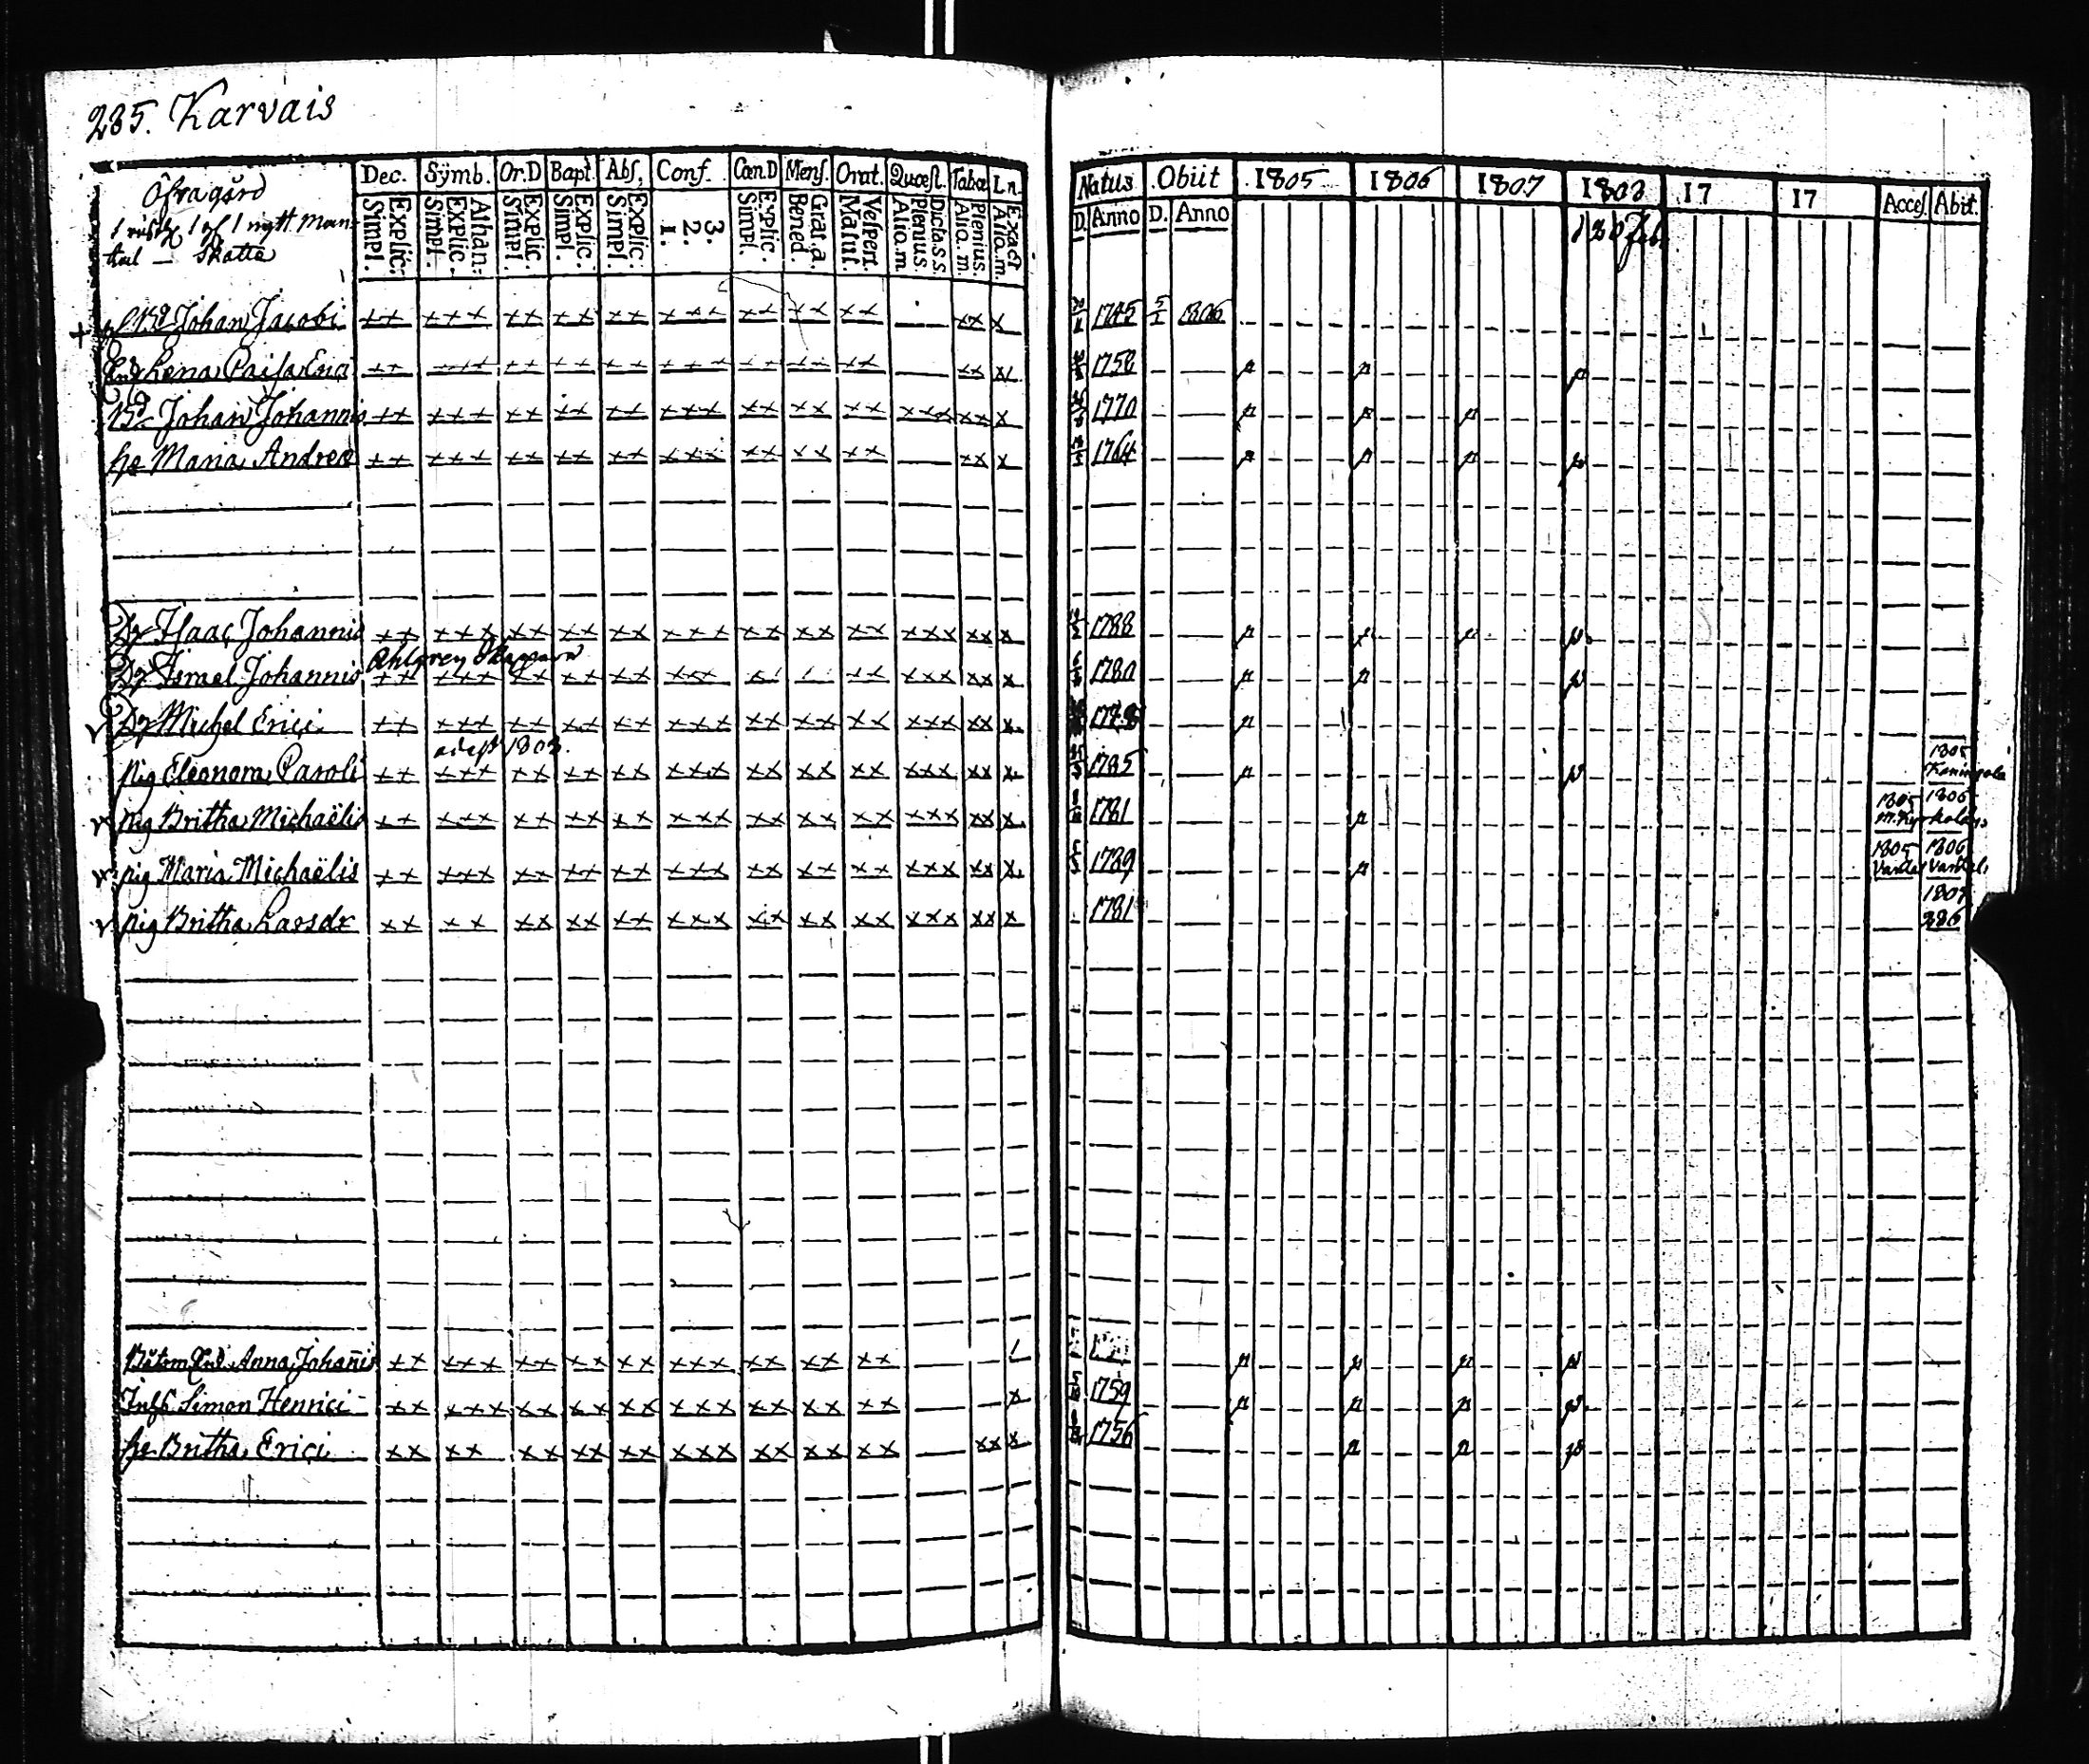 235. Karvais
Öfragård
1 1 nytt man-
tal — Skatte
Dec. Symb. Or.D Bapt. Abs. Conf. Cœn.D Mens. Orat. Quæst. Tabæ Ln.
Explic. Simpl. Athan. Explic. Simpl. Explic. Simpl. Explic. Simpl. Explic. Simpl. 3. 2. 1. Explic. Simpl. Grat.a. Bened. Vespert. Matut. Dicta.S.S. Plenius. Alio.m Plenius. Alio.m. Exact Alio.m.
Natus Obiit 1805 1806 1807 1808 17 17 Acces. Abit.
D. Anno D. Anno
d 26 Feb.
Johan Jacobi xx xxx xx xx xx xxx xx xx xx xx x 1745 5/1 1806
Lena xx xxx xx xx xx xxx xx xx xx xx x 1758
Bd Johan Johannis xx xxx xx xx xx xxx xx xx xx xxx xx x 1770
h. Maria Andreæ xx xxx xx xx xx xxx xx xx xx xx x 1764
Isaac Johannis xx xxx xx xx xx xxx xx xx xx xxx xx x 1788
Ismael Johannis xx xxx xx xx xx xxx xxx xx x 1780
Michel Erici xx xxx xx xx xx xxx xx xx xx xxx xx x
1808.
pig Eleonora Caroli xx xxx xx xx xx xxx xx xx xx xxx xx x 1785 1805
pig Britha Michaëlis xx xxx xx xx xx xxx xx xx xx xxx xx x 1781 1805 1806
pig Maria Michaëlis xx xxx xx xx xx xxx xx xx xx xxx xx x 1789 1805 1806
pig Britha Larsdr xx xx xx xx xx xxx xx xx xx xxx xx x 1781 1807
Anna Johanis xx xxx xx xx xx xxx xx xx xx
Inh. Simon Henrici xx xxx xx xx xx xxx xx xx xx x 1759
h. Britha Erici xx xx xx xx xx xxx xx xx xx xx x 1756